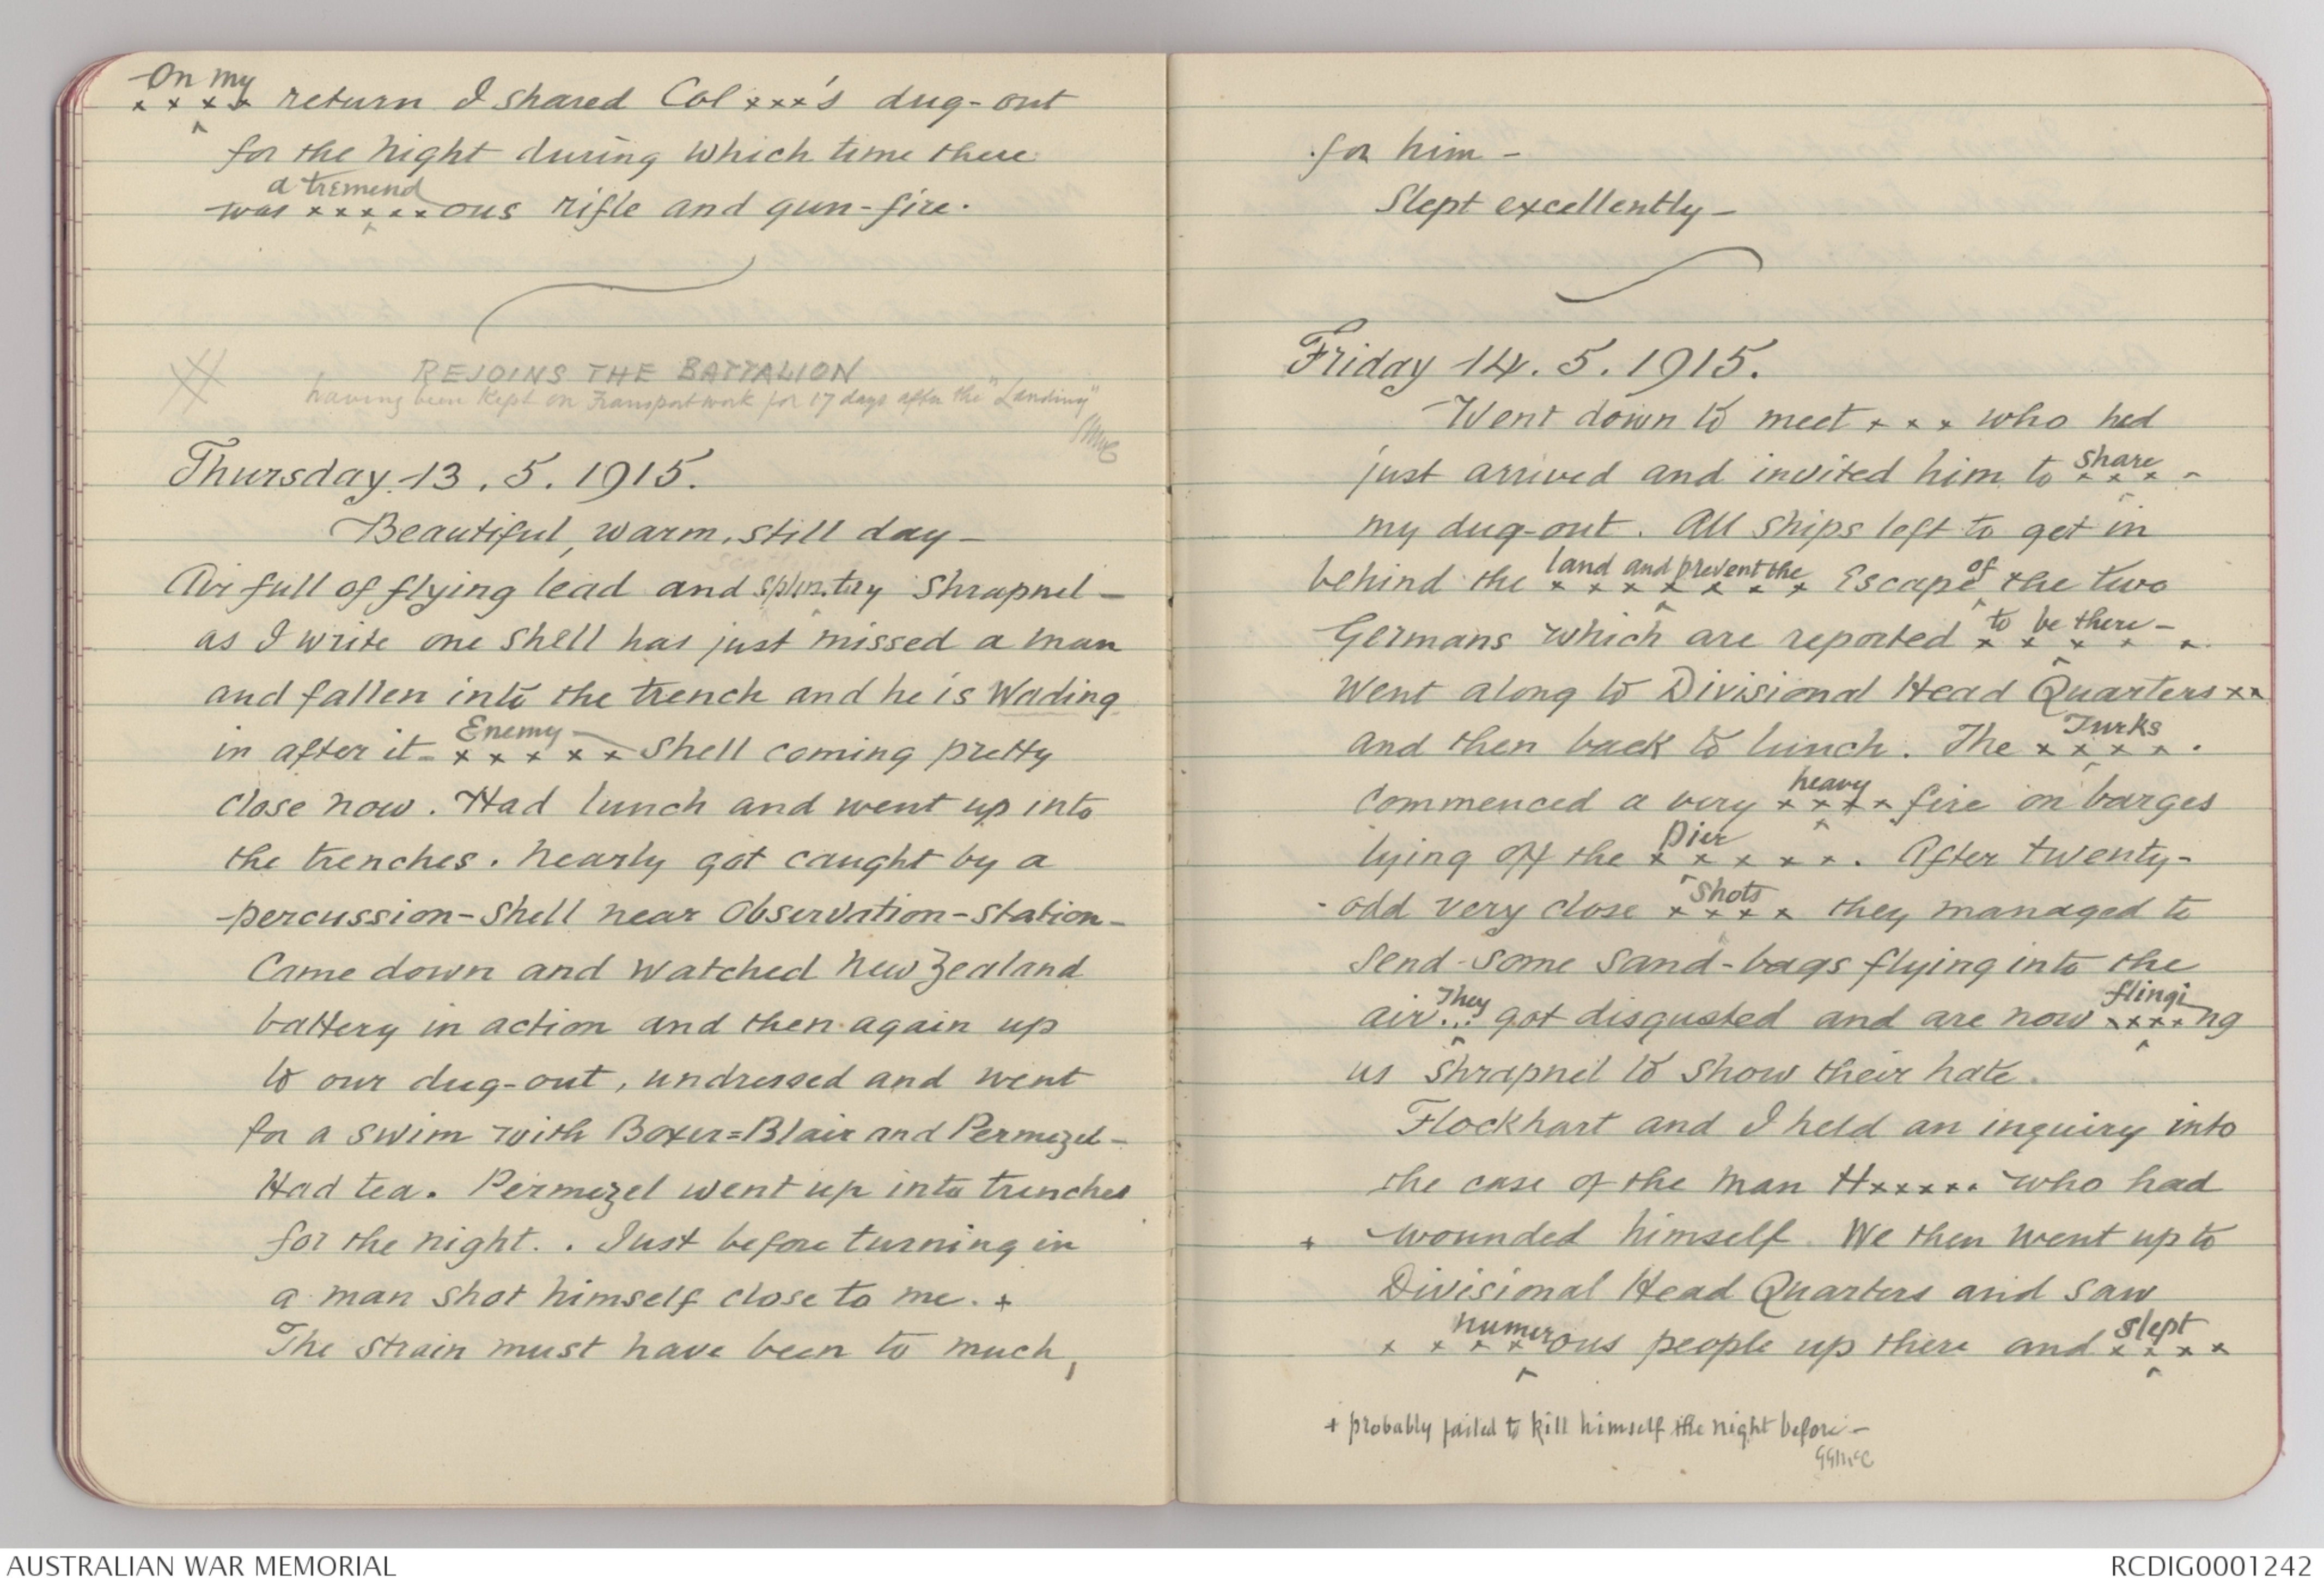 On my
x x x x return I shared Col xxx's dug-out
for the night during which time there
a tremend
was x x x x x ous rifle and gun-fire.
REJOINS THE BATTALION
having been kept on Transport work for 17 days after the "Landing"
Thursday 13. 5. 1915.
Beautiful, warm, still day -
Air full of flying lead and shrapnel -
as I write one shell has just missed a man
and fallen into the trench and he is Wading
Enemy
in after it - x x x x x shell coming pretty
close now. Had lunch and went up into
the trenches. Nearly got caught by a
percussion-shell near Observation-station -
Came down and watched New Zealand
battery in action and then again up
to our dug-out, undressed and went
for a swim with Boxer=Blair and Permezel -
Had tea. Permezel went up into trenches
for the night. . Just before turning in
a man shot himself close to me. +
The strain must have been to much,
for him -
Slept excellently -
Friday 14. 5. 1915.
Went down to meet x x x who had
share
just arrived and invited him to x x x -
my dug-out. All ships left to get in
land and prevent the of
behind the x x x x x x x Escape the two
to be there -
Germans which are reported x x x x x
went along to Divisional Head Quarters x x
Turks
and then back to lunch. The x x x x .
heavy
commenced a very x x x x fire on barges
pier
lying off the x x x x x . After twenty-
shots
odd very close x x x x they managed to
send some sand-bags flying into the
They flingi
air... got disgusted and are now x x x x ng
us shrapnel to show their hate.
Flockhart and I held an inquiry into
the case of the man Hxxxxx who had
+ wounded himself. We then went up to
Divisional Head Quarters and saw
numer slept
x x x x ous people up there and x x x x
+ probably failed to kill himself the night before -
GGMcC
AUSTRALIAN WAR MEMORIAL
RCDIG0001242